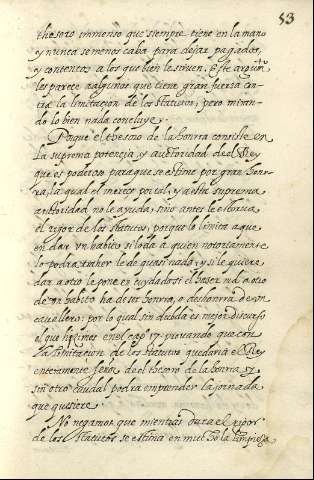 53
thesoro immenso que siempre tiene en la mano
y nunca se menoscaba para dejar pagados,
y contentos a los que bien le sirven. Este argum.to
les parece a algunos que tiene gran fuerza con
tra la limitacion de los statutos, pero miran-
do lo bien nada concluye.
Porque el thesoro de la honrra consiste en
la suprema potencia, y auctoridad del Rey
que es poderoso para que se estime por gran hon-
rra, la qual el merece por tal, y a esta suprema
autoridad no le ayuda, sino antes le estorva
el rigor de los statutos, porque lo limita a que
en dar un habito si lo da a quien notoriamente
lo podra traher le de quasi nada, y si le quiere
dar a otro le pone en cuydado si el hazer md. a otro
de un habito ha de ser honrra, o deshonrra de un
cavallero: por lo qual sin duda es mejor discurso
el que hizimos en el cap. 17. provando que con
la limitacion de los statutos quedaria el Rey
enteramente señor del thesoro de la honrra, y
sin otro caudal podra emprender la jornada
que quisiere.
No negamos que mientras dura el rigor
de los statutos se estima en mucho la limpieza